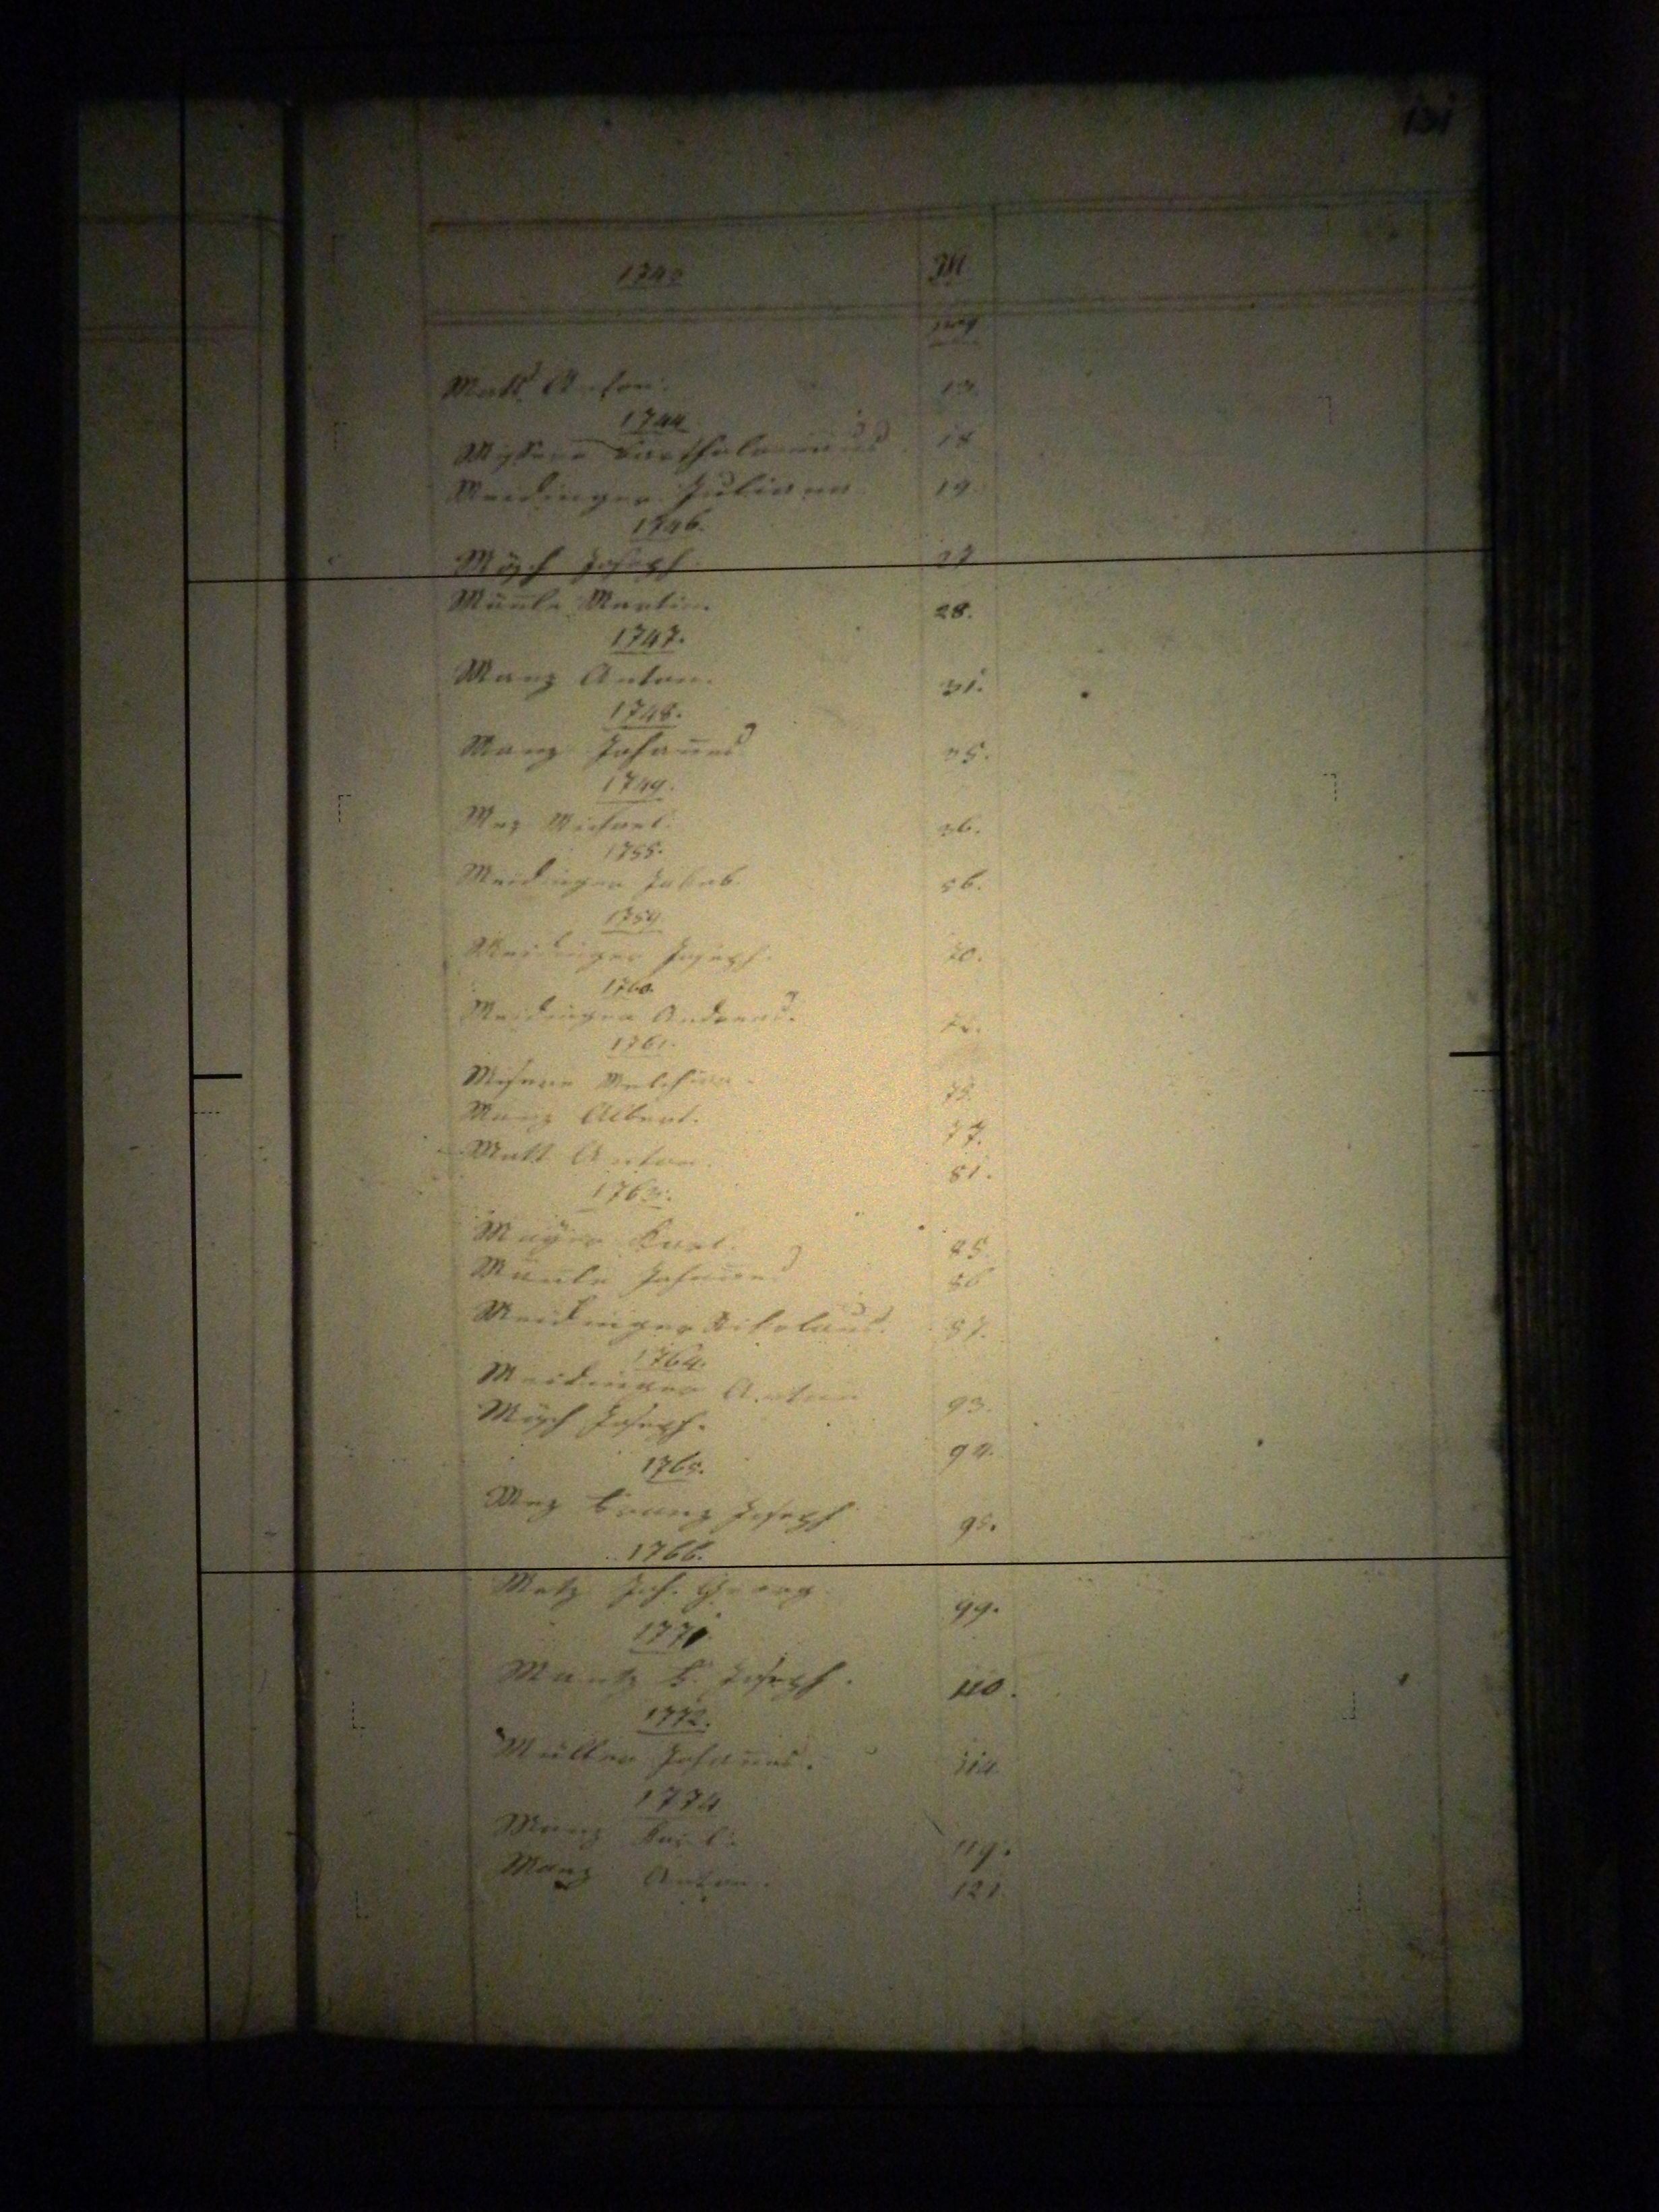 101
1743 M
pag.
Matt Anton. 13.
1744
Bartholomäus 18
Meidinger Juliana 19.
1746.
Mösch Joseph. 27
Männle Martin. 28.
1747.
Manz Anton. 31.
1748.
Manz Johannes 35.
1749.
Mez Michael. 36.
1755.
Meidinger Jakob. 56.
1759
Meidinger Joseph. 70.
1760.
Meidinger Andreas.
1761.
Melchior. 75.
Manz Albert. 77.
Matt Anton. 81.
1763.
Mayer Karl. 85.
Männle Johannes 86
Meidinger Nikolaus. 87.
1764.
Meidinger Anton 93.
Mösch Joseph. 94.
1765.
Mez Franz Joseph 95.
1766.
Metz Joh. Georg. 99.
1771.
Mantz F. Joseph. 110.
1772.
Müller Johannes. 114
1774
Manz Karl. 119.
Manz Anton. 121